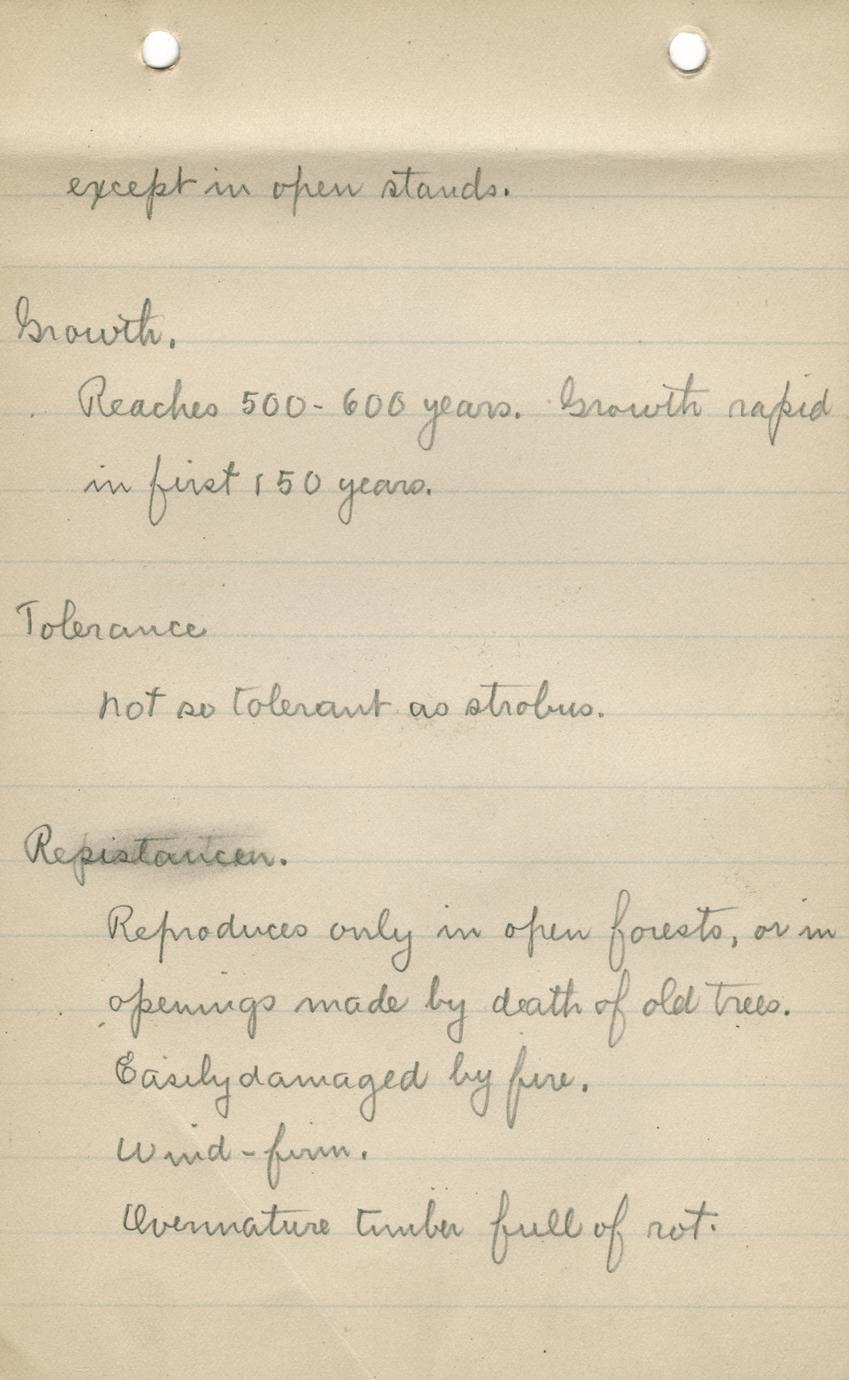 except in open stands.
Growth.
Reaches 500-600 years. Growth rapid
in first 150 years.
Tolerance
not so tolerant as strobus.
Reproduces only in open forests, or in
openings made by death of old trees.
Easily damaged by fire.
Wind-firm.
Overmature timber full of rot.